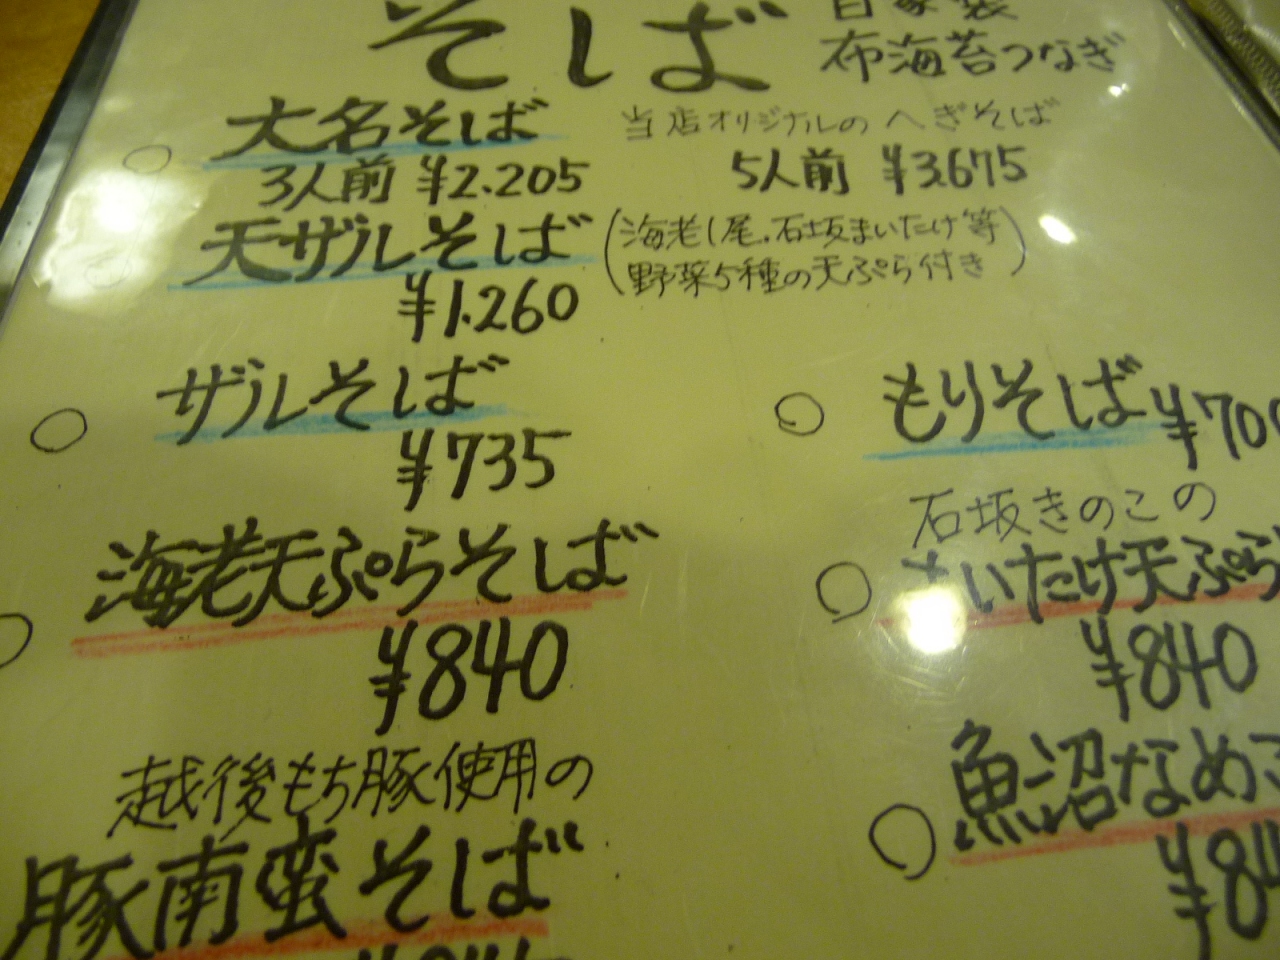 そば
自家製
布海苔つなぎ
大名そば 当店オリジナルの へぎそば
3人前 ¥2.205 5人前 ¥3.675
天ザルそば (海老1尾.石坂まいたけ等
野菜5種の天ぷら付き)
¥1.260
ザルそば
¥735
もりそば ¥700
海老天ぷらそば
¥840
石坂きのこの
まいたけ天ぷら
¥840
越後もち豚使用の
豚南蛮そば
魚沼なめこ